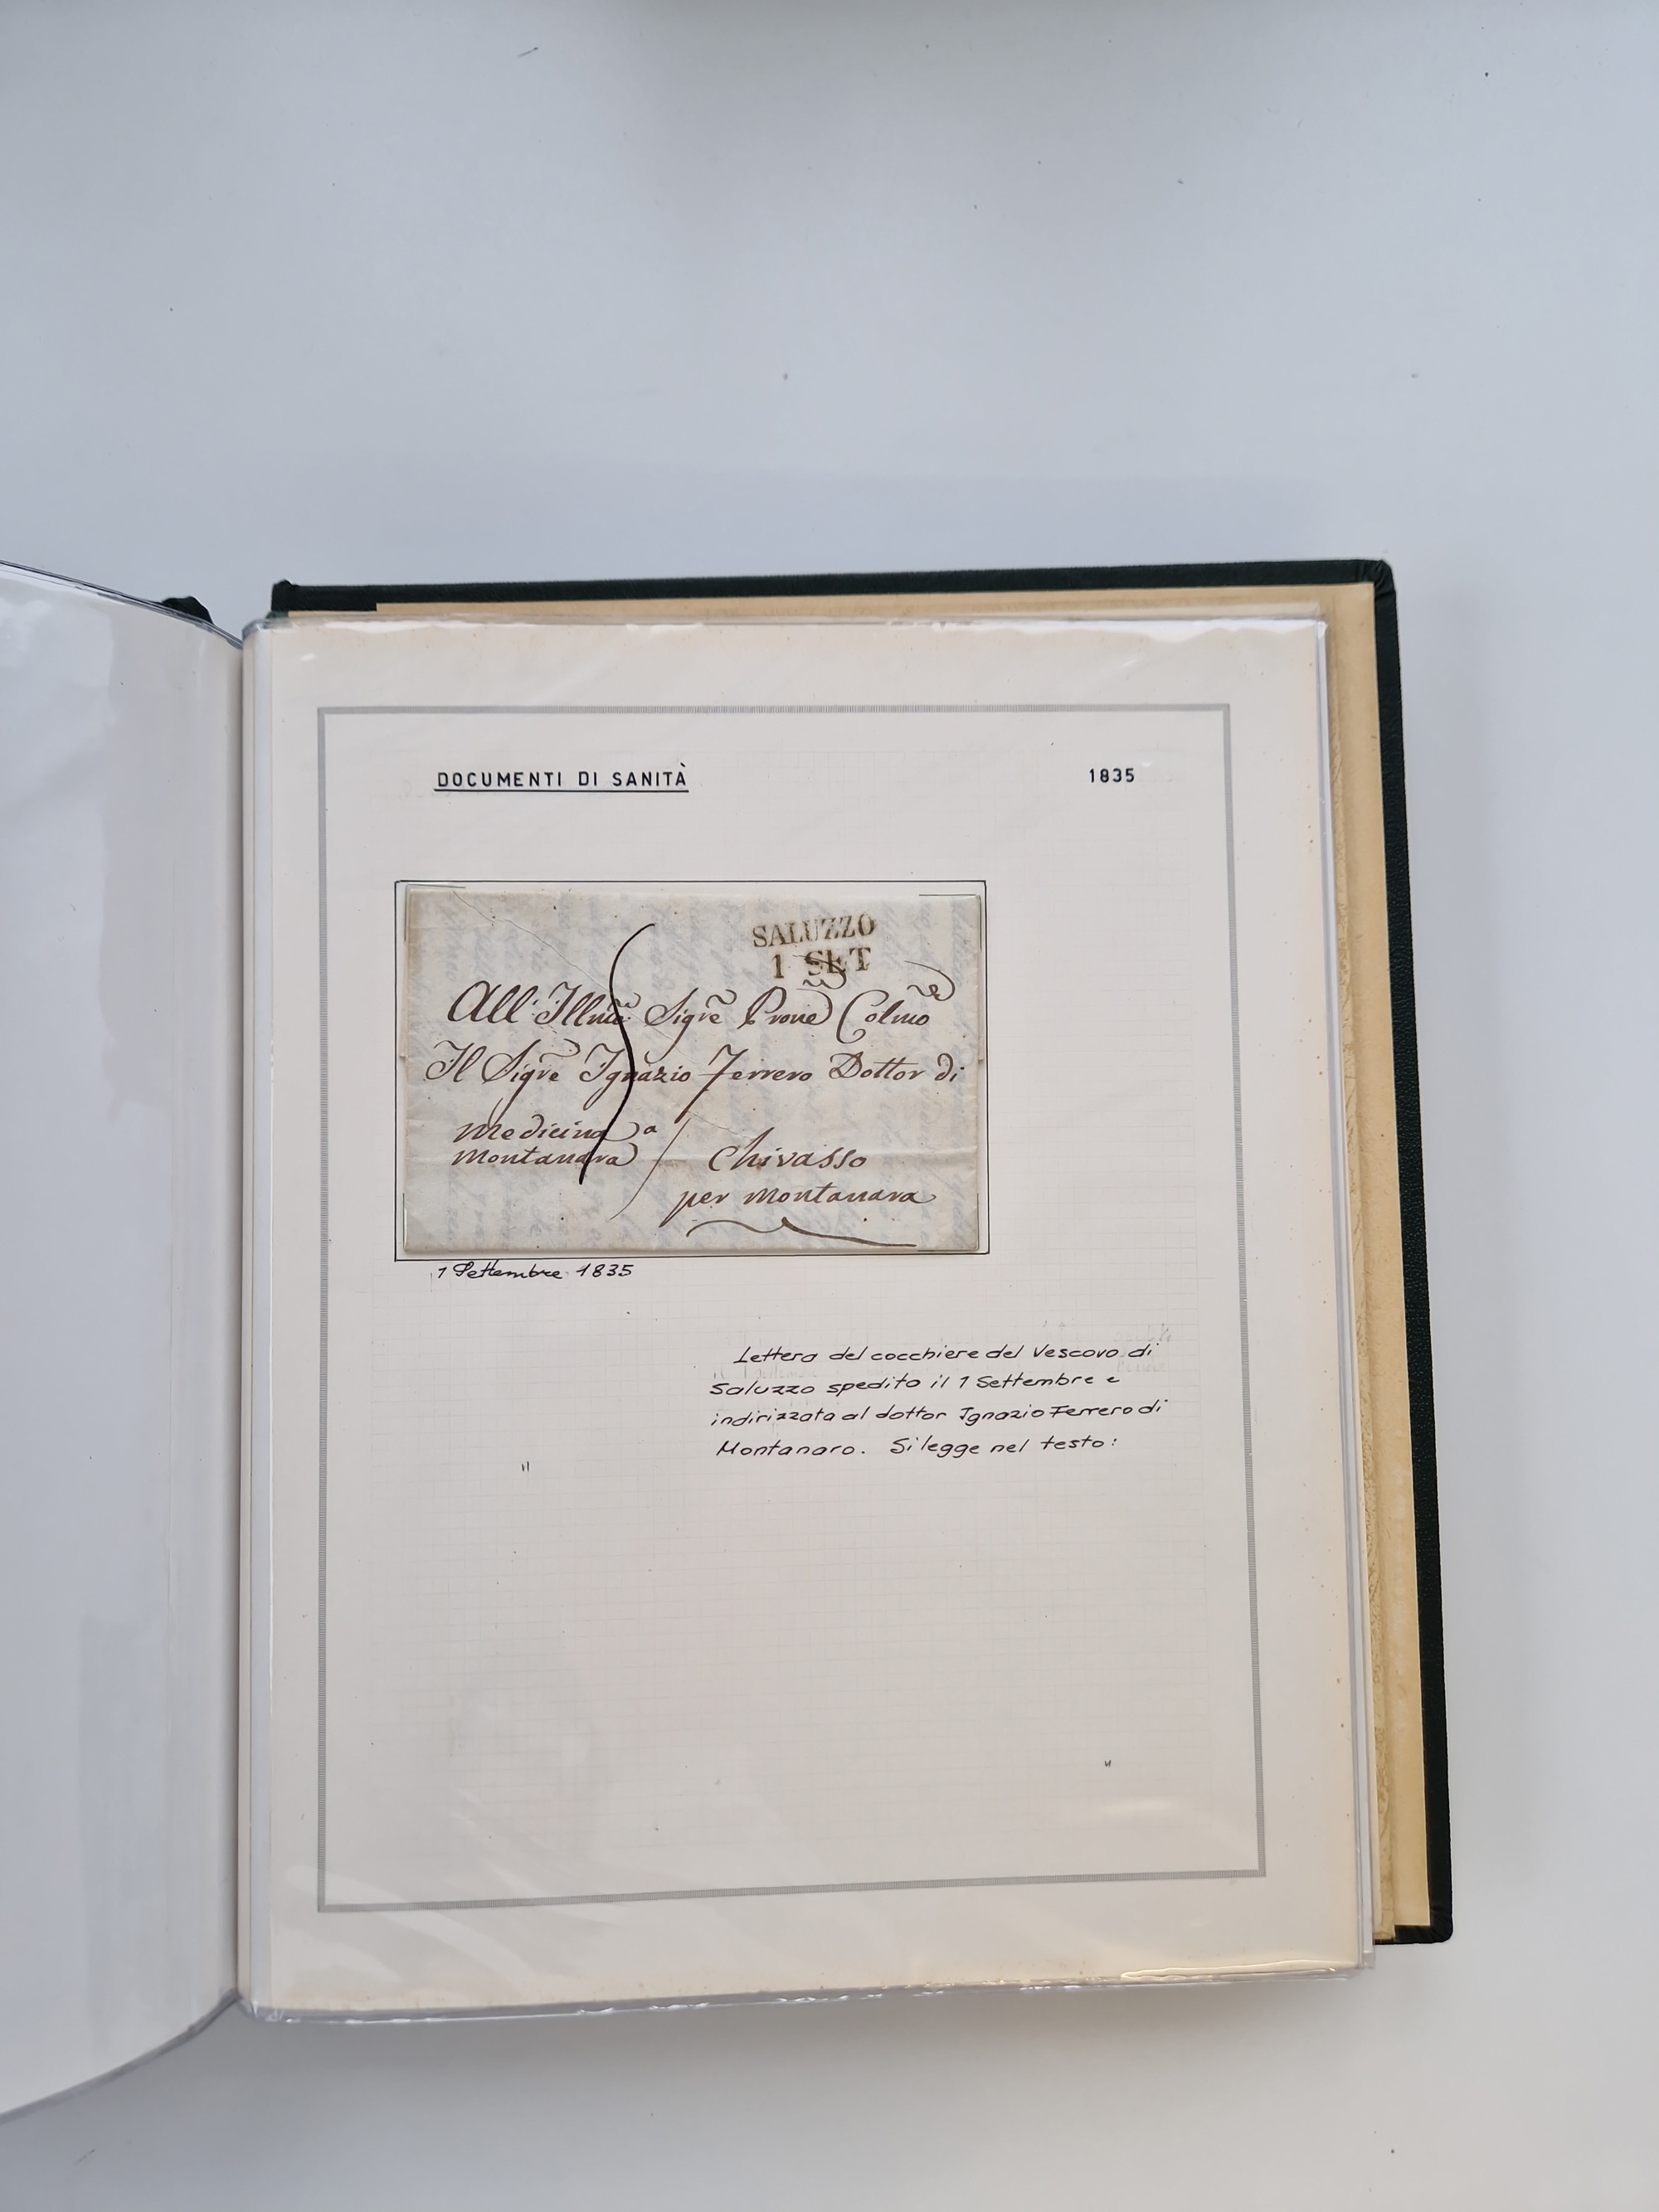 DOCUMENTI DI SANITÀ
1835
SALUZZO
1 SET
All' Illmo Sigre Prone Colmo
Il Sigre Ignazio Ferrero Dottor di
Medicina a
Montanara
Chivasso
per Montanara
1 Settembre 1835
Lettera del cocchiere del Vescovo di
Saluzzo spedito il 1 Settembre e
indirizzata al dottor Ignazio Ferrero di
Montanaro. Si legge nel testo:
"
"